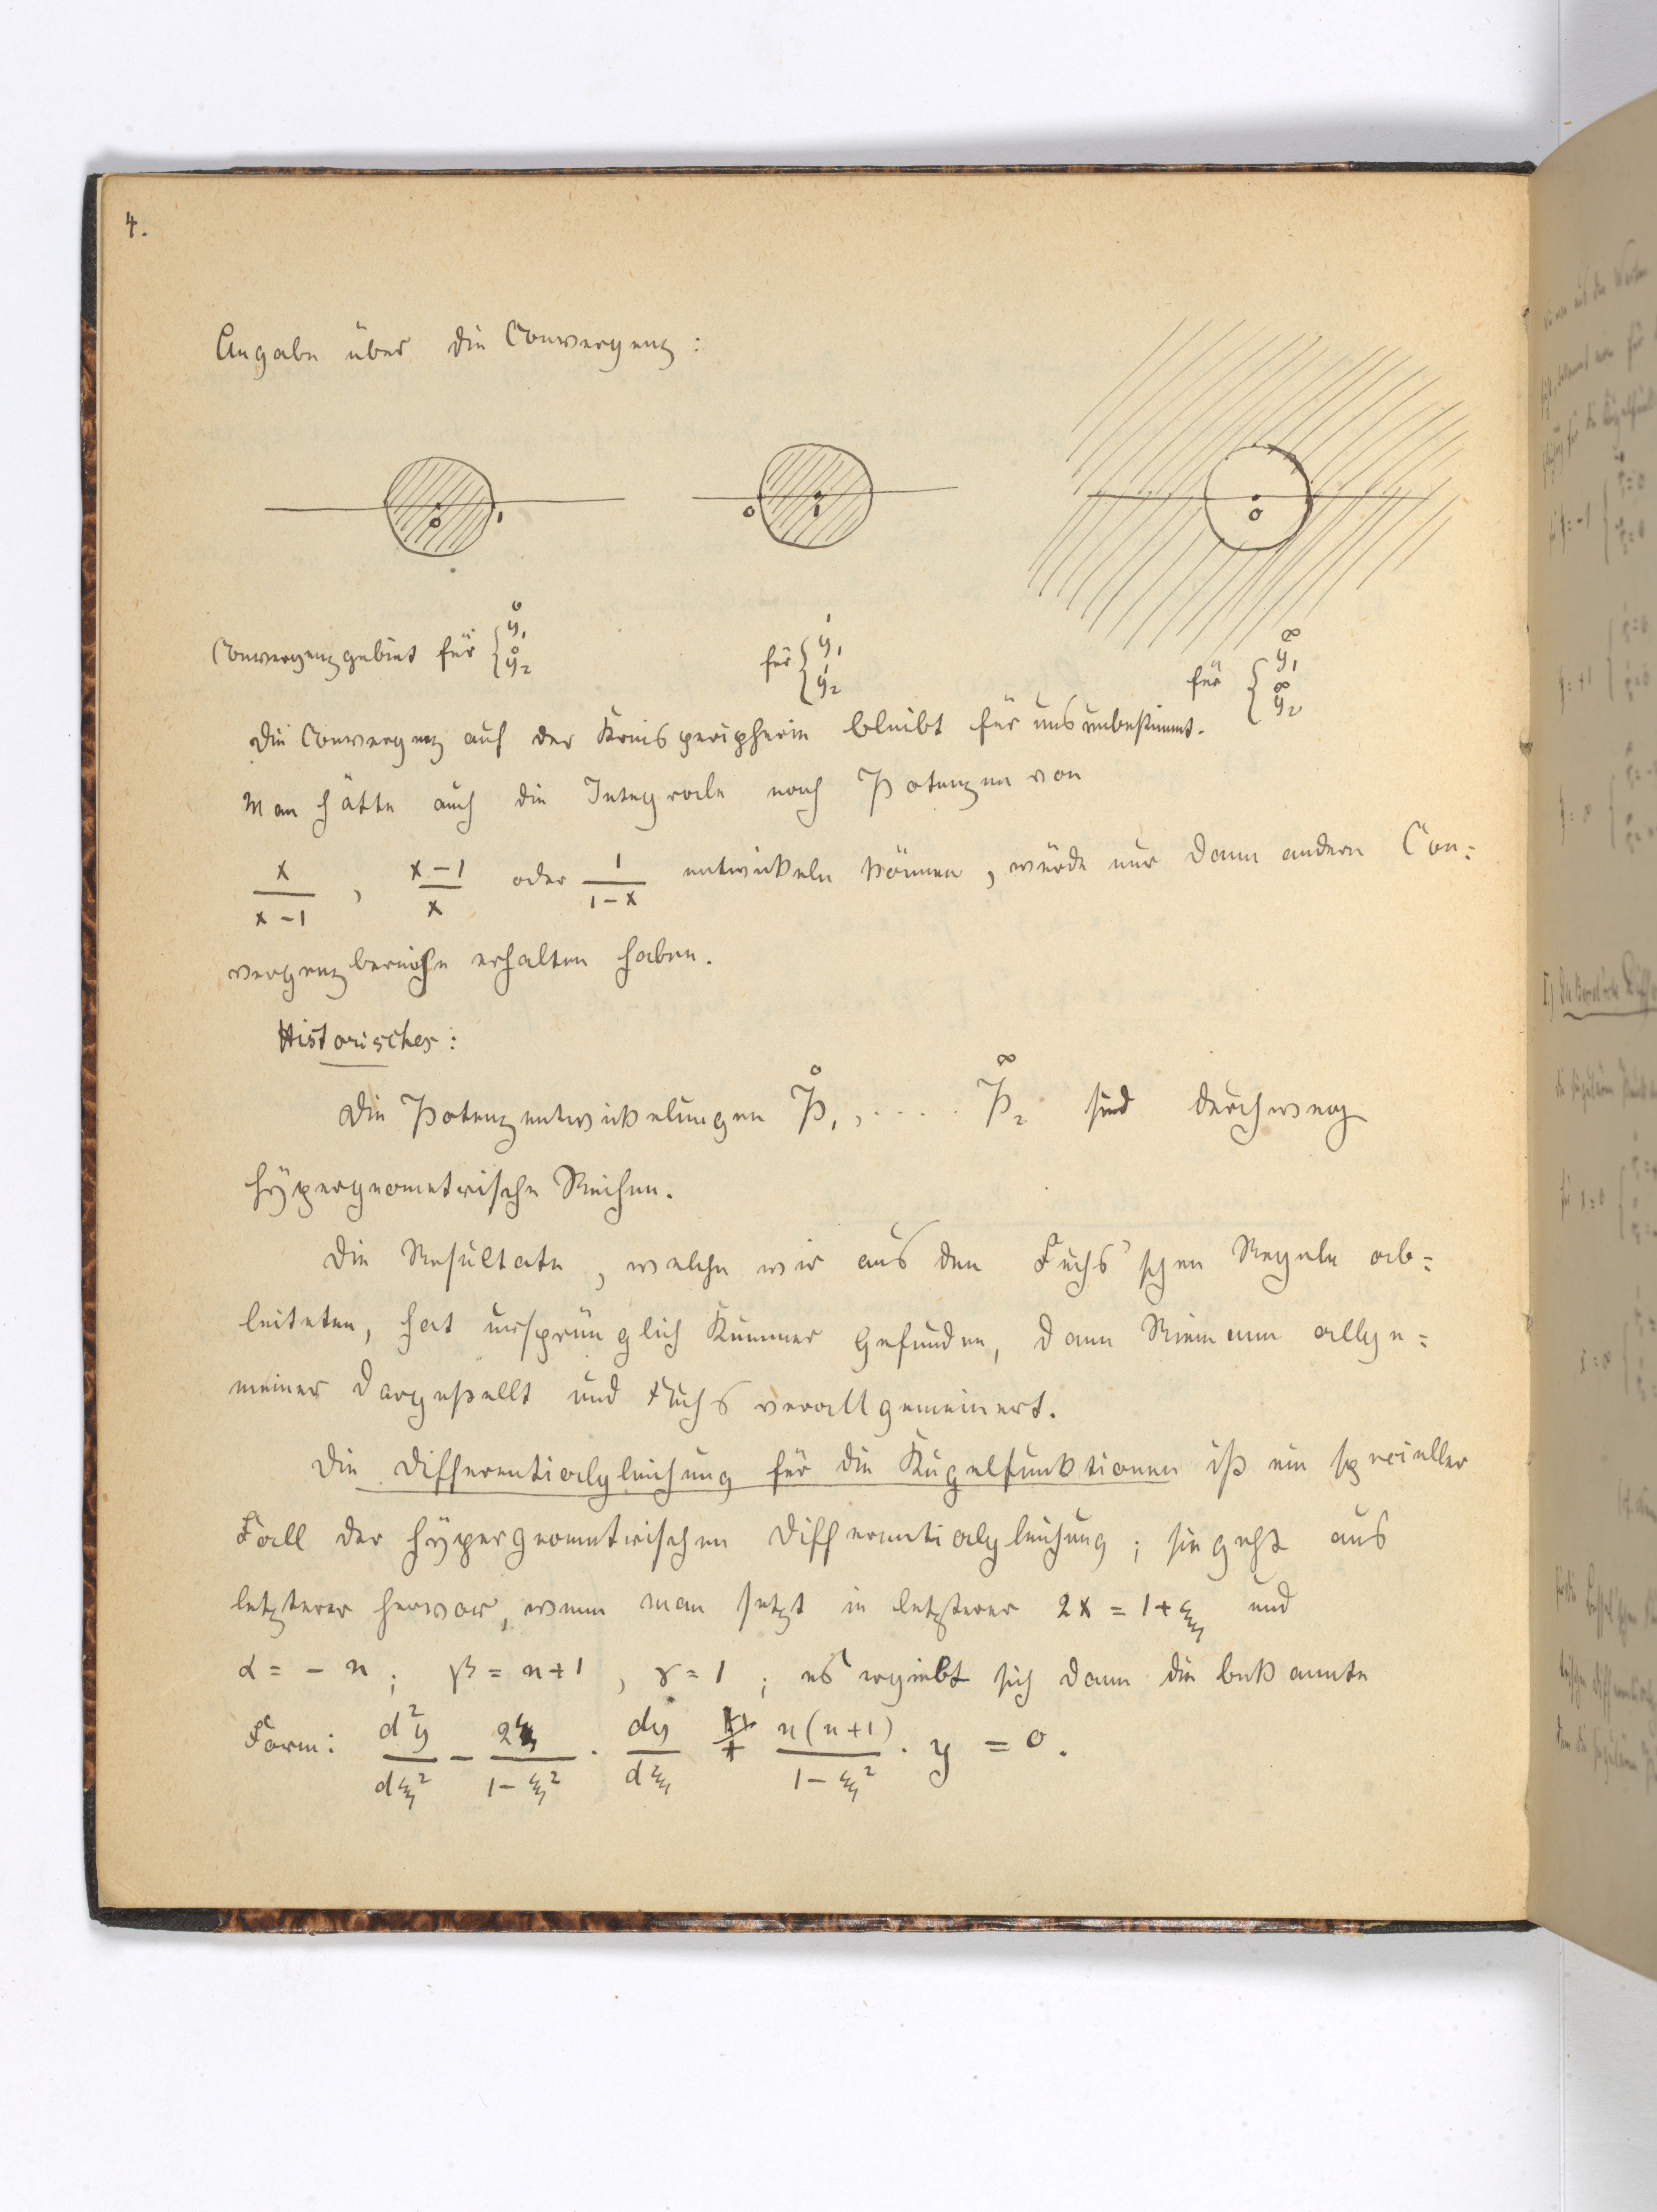 4.
Angabe über die Convergenz:
0 1 0 1 0
Convergenzgebiet für { ẙ₁ ẙ₂ für { y₁¹ y₂¹ für { y₁^∞ y₂^∞
Die Convergenz auf der Kreisperipherie bleibt für uns unbestimmt.
Man hätte auch die Integrale nach Potenzen von
x/(x-1) , (x-1)/x oder 1/(1-x) entwickeln können, würde nur dann andere Con=
vergenzbereiche erhalten haben.
Historisches:
Die Potenzentwickelungen P̊₁, . . . . P₂^∞ sind durchweg
hypergeometrische Reihen.
Die Resultate, welche wir aus den Fuchs'schen Regeln ab=
leiteten, hat ursprünglich Kummer gefunden, dann Riemann allge=
meiner dargestellt und Fuchs verallgemeinert.
Die Differentialgleichung für die Kugelfunktionen ist ein specieller
Fall der hypergeometrischen Differentialgleichung; sie geht aus
letzterer hervor, wenn man setzt in letzterer 2x = 1+ξ und
α = - n; β = n+1, γ = 1; es ergiebt sich dann die bekannte
Form: d²y/dξ² - 2ξ/(1-ξ²) · dy/dξ + n(n+1)/(1-ξ²) · y = 0.